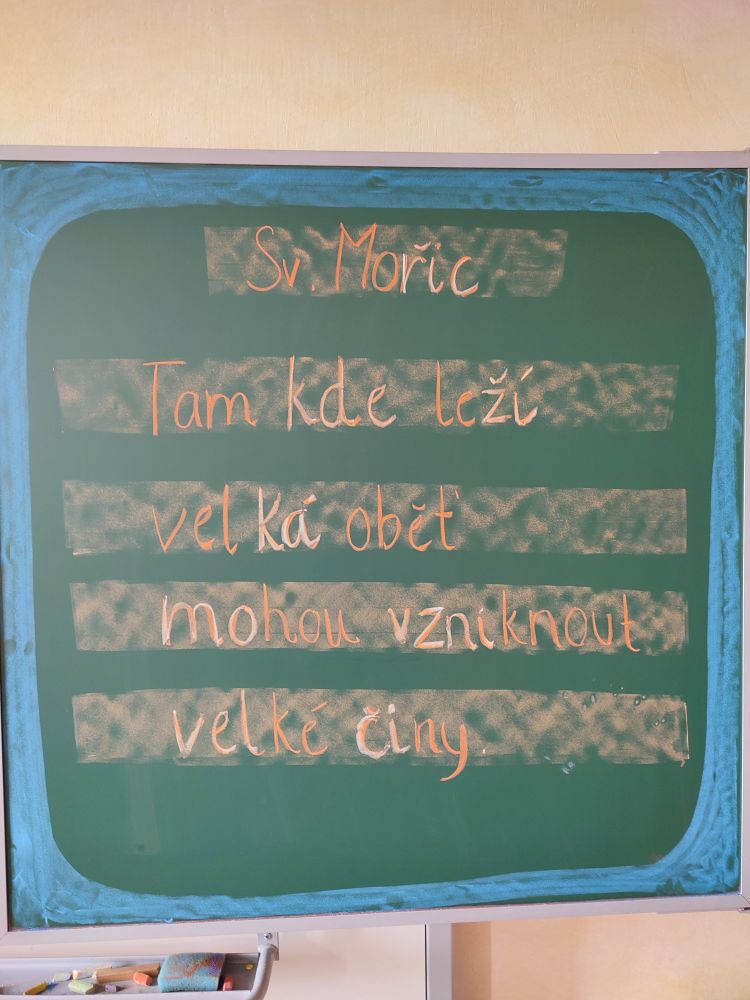 Sv. Mořic
Tam kde leží
velká oběť
mohou vzniknout
velké činy.